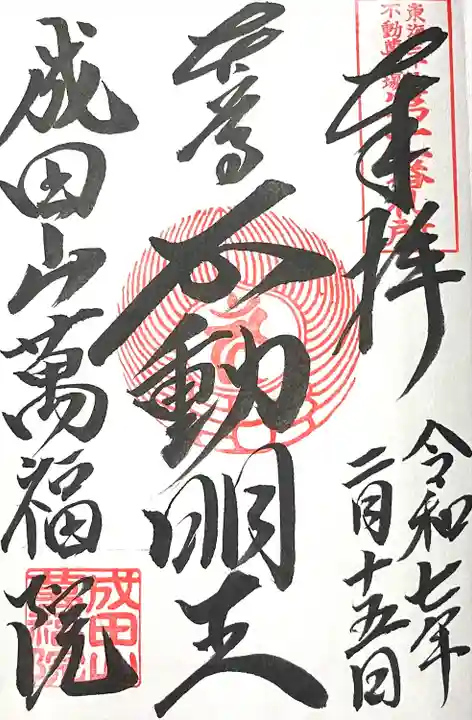 東海三十六
不動尊霊場
奉拝
令和七年
二月十五日
本尊
不動明王
成田山萬福院
成田山
萬福院